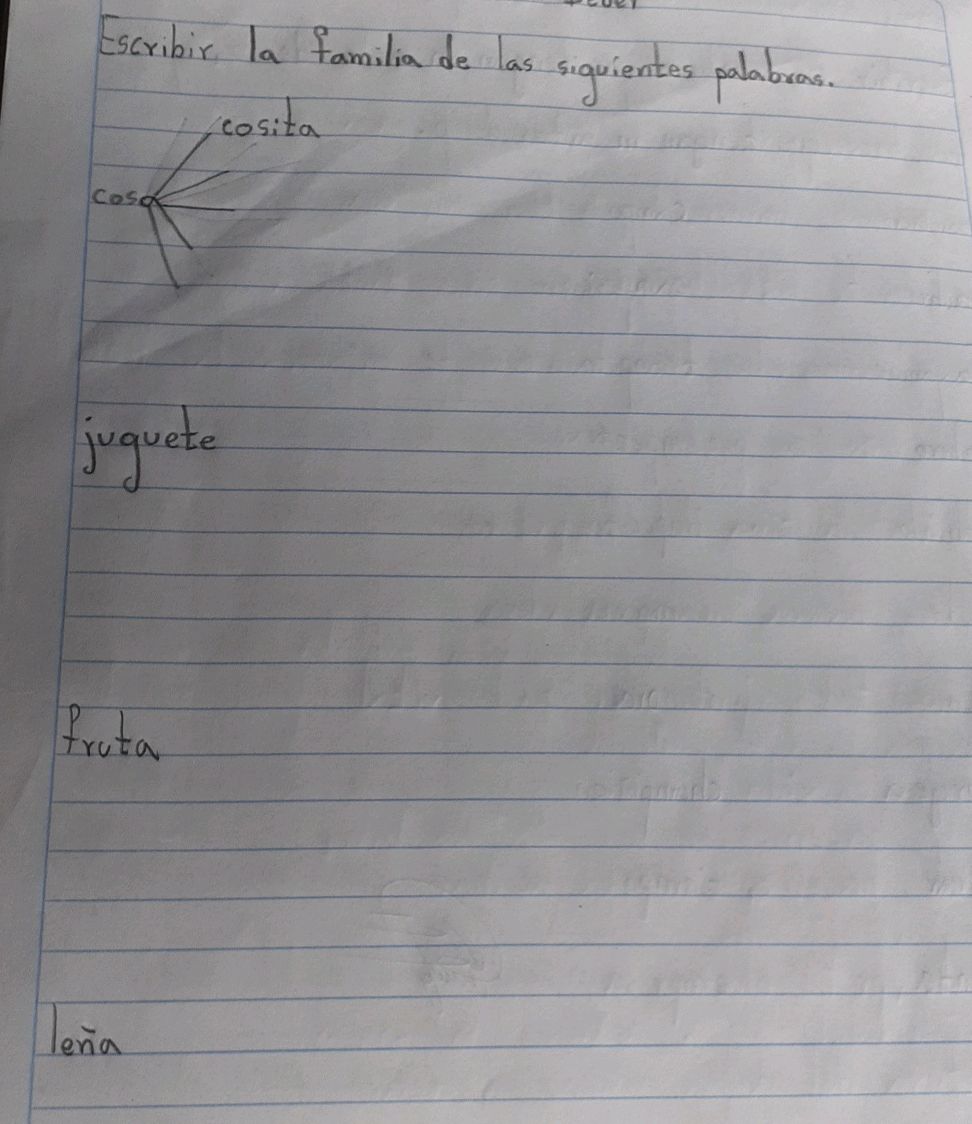 Escribir la familia de las siguientes palabras.
cosita
cosa
juguete
fruta
leña